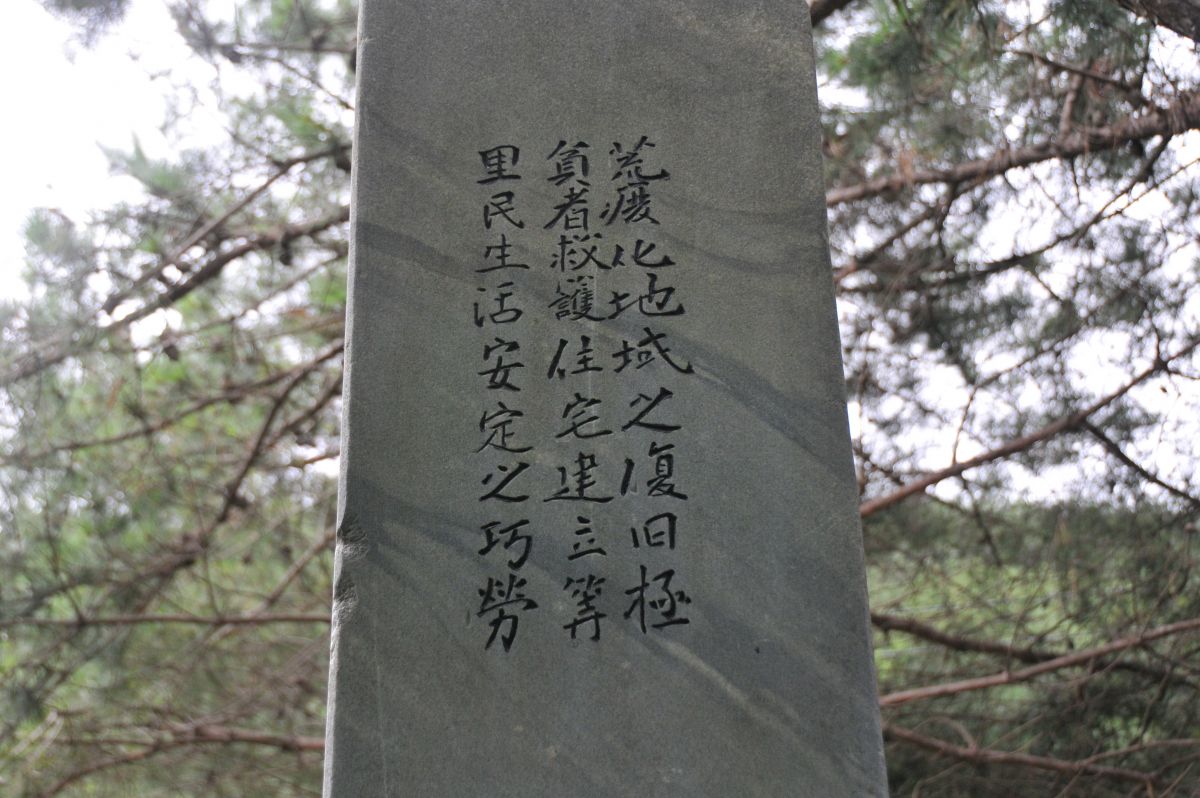 荒廃化地域之復旧極
貧者救護住宅建立等
里民生活安定之巧勞